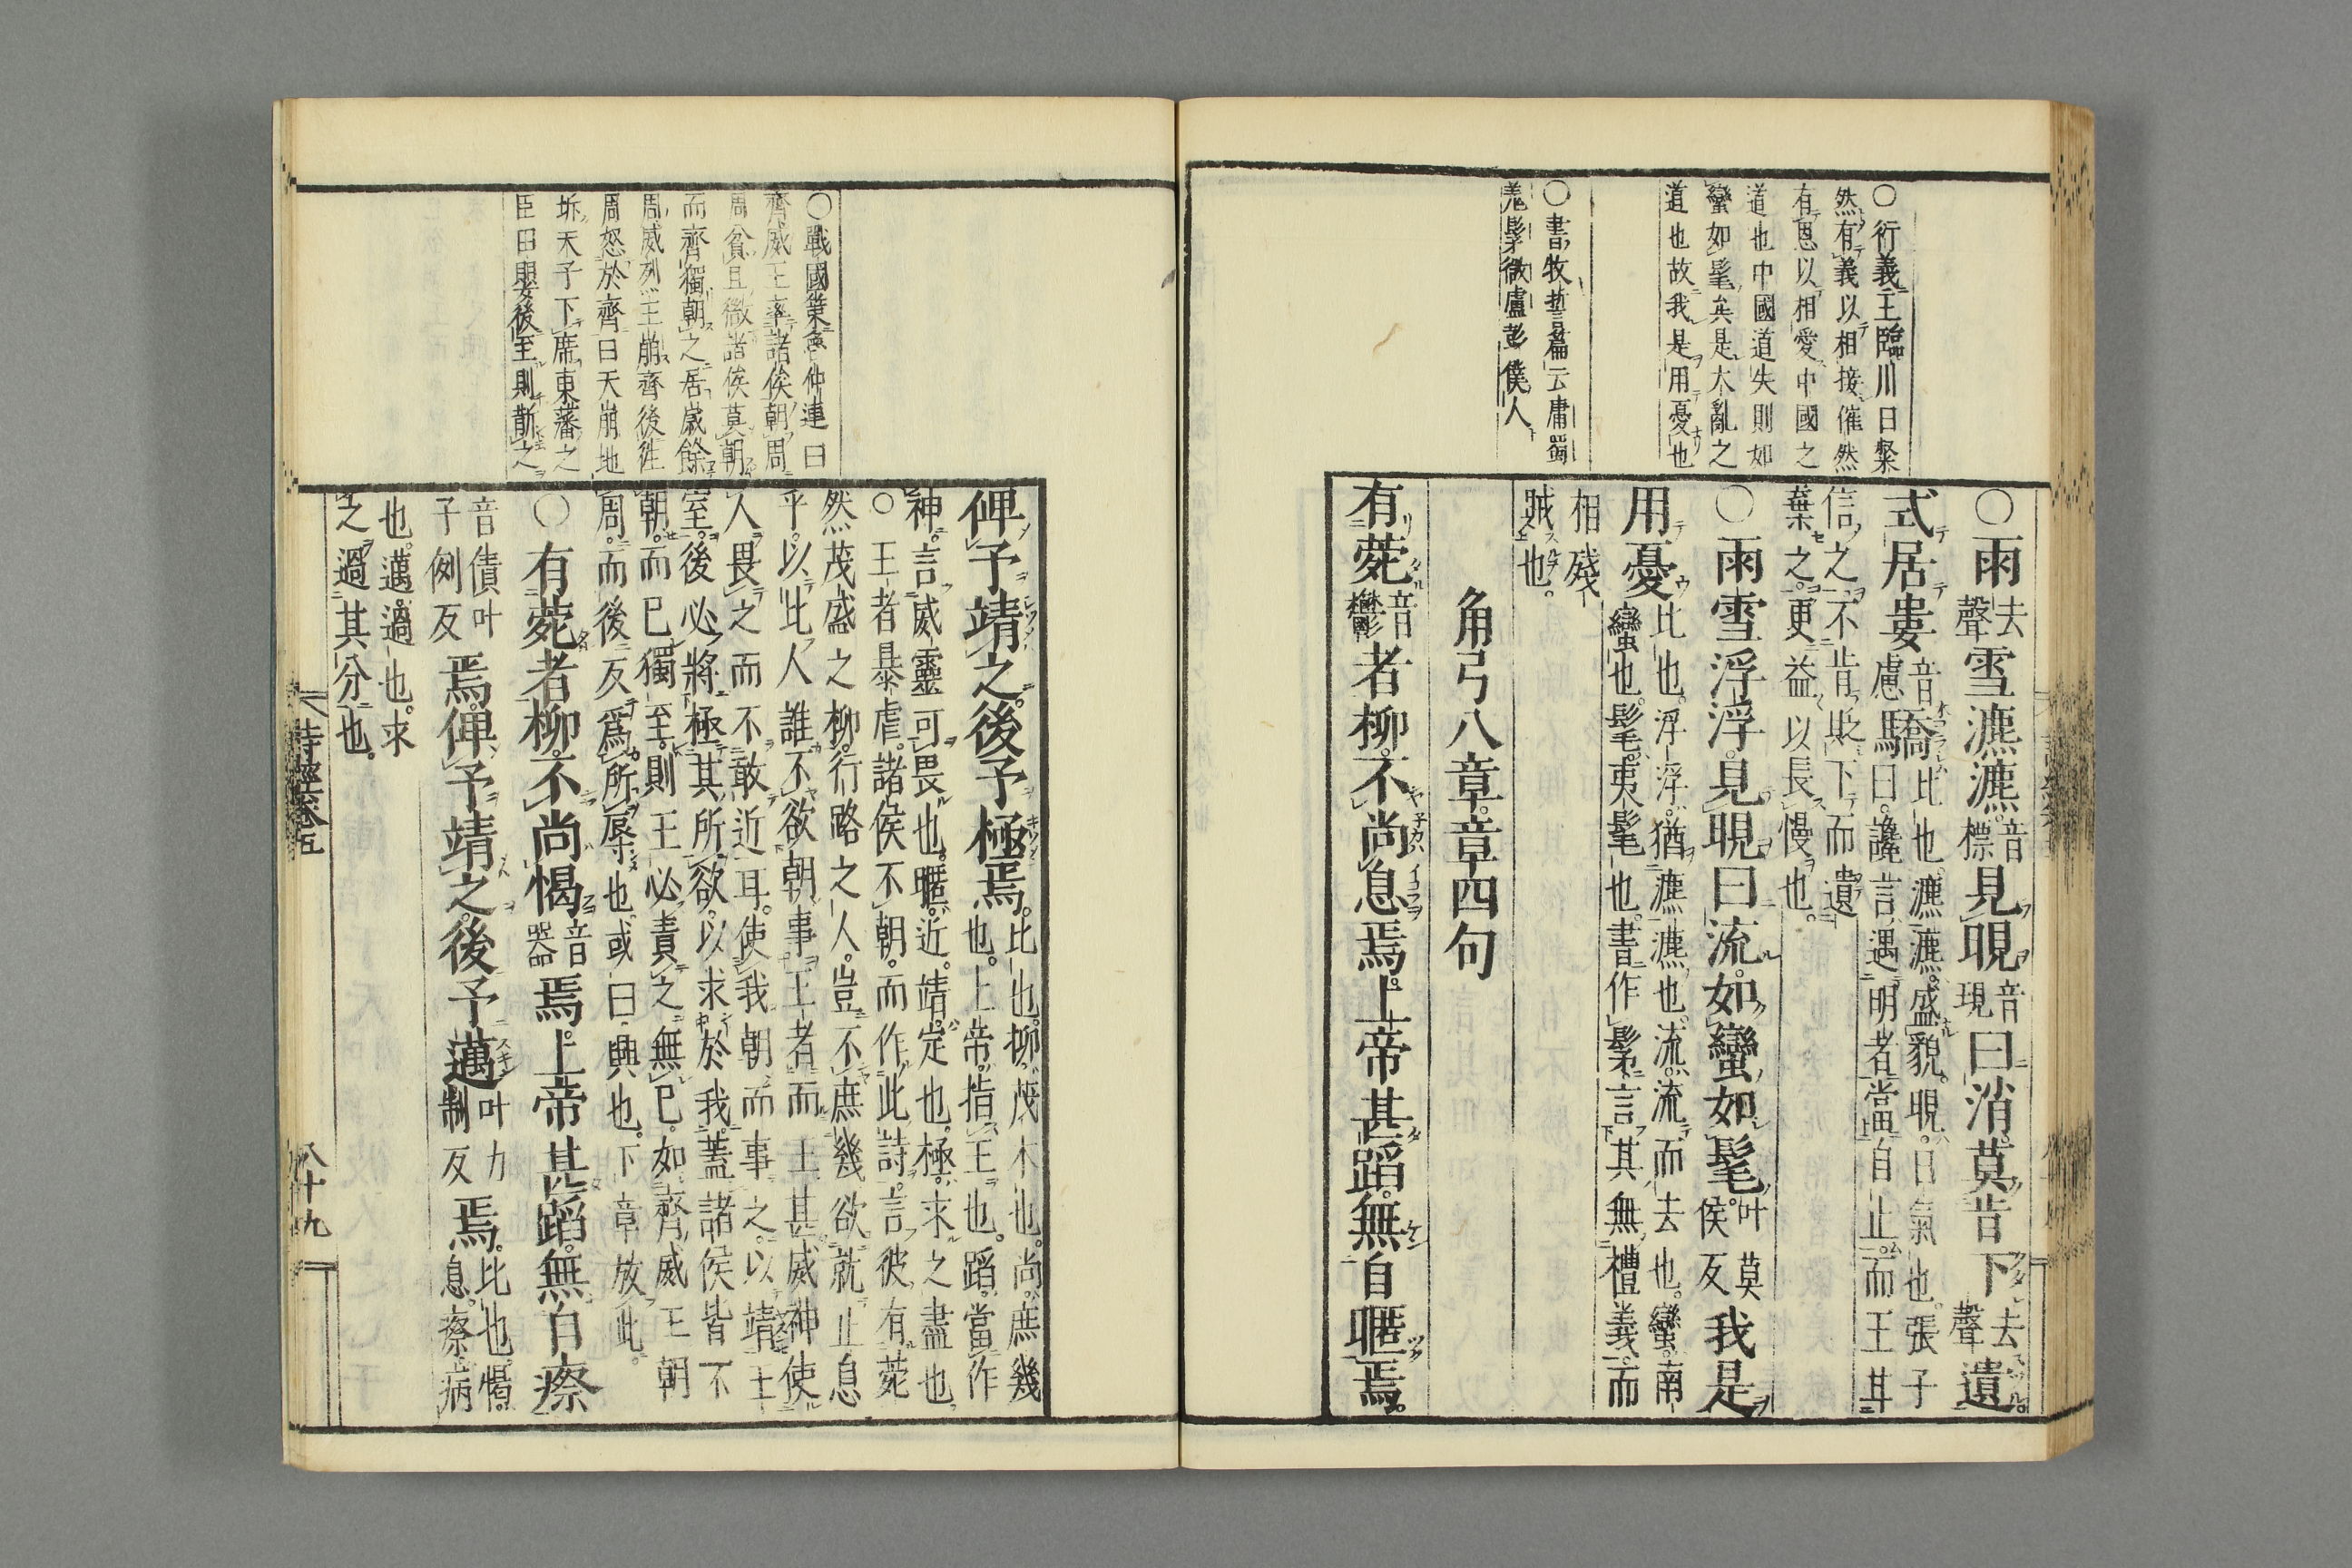 ○衍義王臨川曰粲
然有義以相接催然
有恩以相愛中國之
道也中國道失則如
蠻如髦矣是大亂之
道也故我是用憂也
○書牧誓篇云庸蜀
羗髳微盧彭僕人
○雨去聲雪瀌瀌音標見晛音現曰消莫肯下去聲遺
式居婁音慮驕比也瀌瀌盛貌晛日氣也張子曰讒言遇明者當自止而王甘
信之不肯貶下而遺
棄之更益以長慢也
○雨雪浮浮見晛曰流如蠻如髦叶莫侯反我是
用憂比也浮浮猶瀌瀌也流流而去也蠻南蠻也髦夷髦也書作髳言其無禮義而
相殘
賊也
角弓八章章四句
有菀音鬱者柳不尚息焉上帝甚蹈無自暱焉
○戰國策魯仲連曰
齊威王率諸侯朝周
周貧且微諸侯莫朝
而齊獨朝之居歲餘
周威烈王崩齊後徃
周怒於齊曰天崩地
坼天子下席東藩之
臣田嬰後至則斮之
俾予靖之後予極焉比也柳茂木也尚庶幾也上帝指王也蹈當作
神言威靈可畏也暱近靖定也極求之盡也
○王者暴虐諸侯不朝而作此詩言彼有菀
然茂盛之柳行路之人豈不庶幾欲就止息
乎以比人誰不欲朝事王者而王甚威神使
人畏之而不敢近耳使我朝而事之以靖王
室後必將極其所欲以求於我蓋諸侯皆不
朝而已獨至則王必責之無已如齊威王朝
周而後反爲所辱也或曰興也下章放此
○有菀者柳不尚愒音器焉上帝甚蹈無自瘵
音債叶子例反焉俾予靖之後予邁叶力制反焉比也愒息瘵病
也邁過也求
之過其分也
詩經卷五
八十九